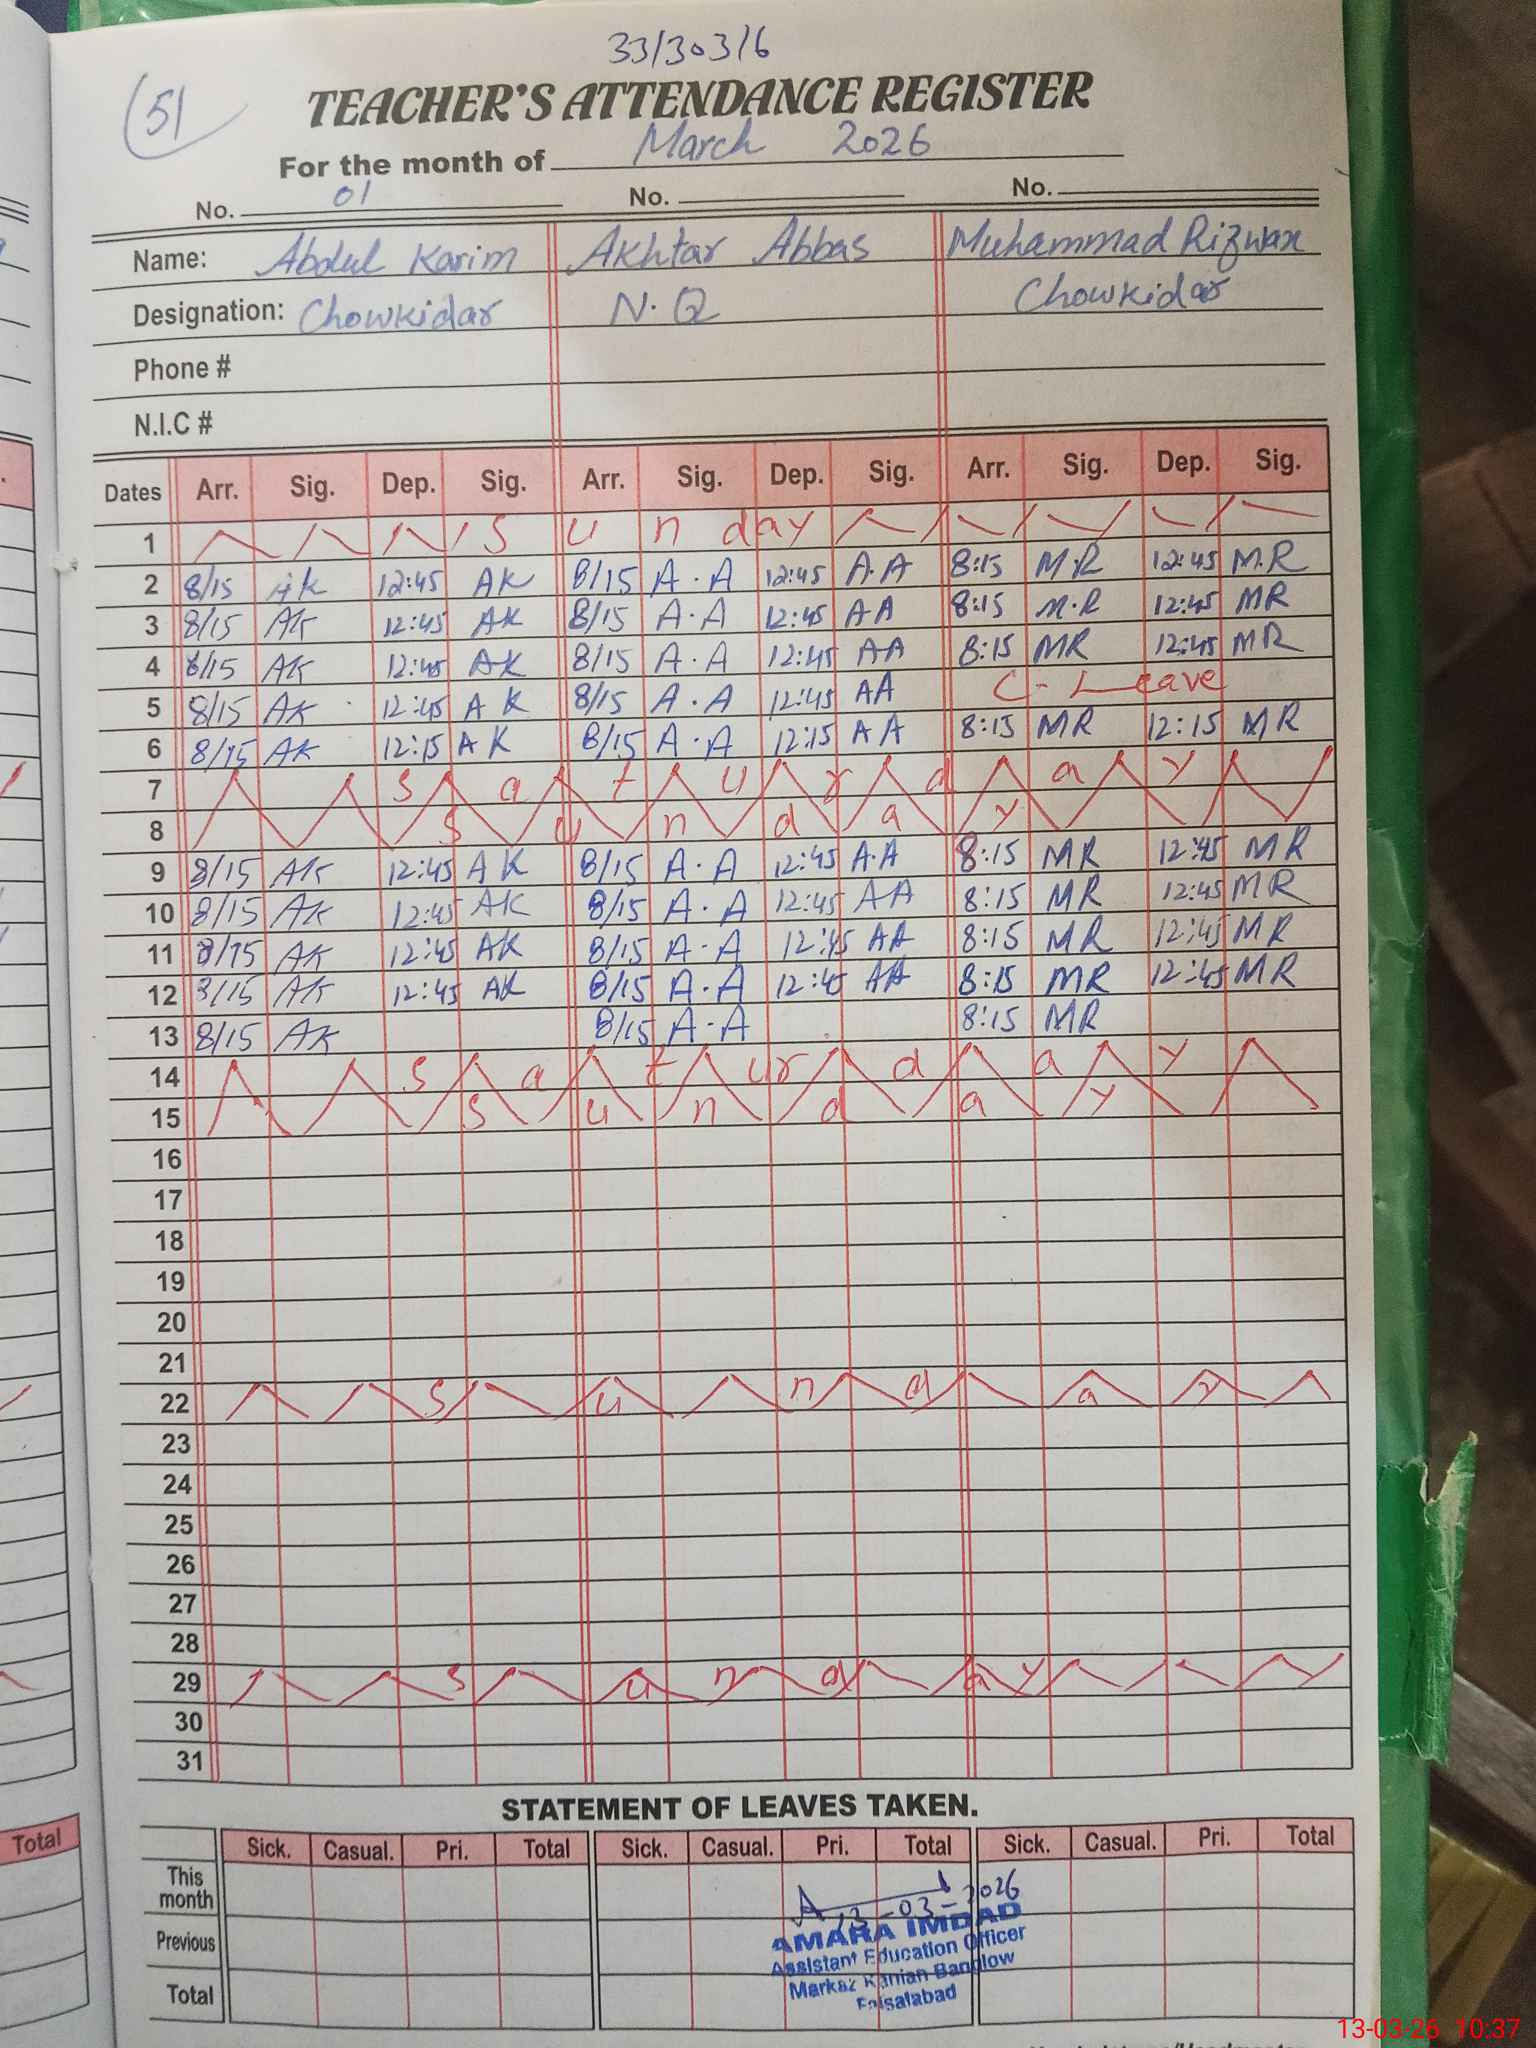 33/303/6
51
TEACHER'S ATTENDANCE REGISTER
For the month of March 2026
No. 01 No. No.
Name: Abdul Karim Akhtar Abbas Muhammad Rizwan
Designation: Chowkidar N.Q Chowkidar
Phone #
N.I.C #
Dates Arr. Sig. Dep. Sig. Arr. Sig. Dep. Sig. Arr. Sig. Dep. Sig.
1 Sunday
2 8/15 AK 12:45 AK 8/15 A.A 12:45 A.A 8:15 M.R 12:45 M.R
3 8/15 AK 12:45 AK 8/15 A.A 12:45 AA 8:15 M.R 12:45 MR
4 8/15 AK 12:45 AK 8/15 A.A 12:45 AA 8:15 MR 12:45 MR
5 8/15 AK 12:45 AK 8/15 A.A 12:45 AA C-Leave
6 8/15 AK 12:15 AK 8/15 A.A 12:15 AA 8:15 MR 12:15 MR
7 Saturday
8 Sunday
9 8/15 AK 12:45 AK 8/15 A.A 12:45 A.A 8:15 MR 12:45 MR
10 8/15 AK 12:45 AK 8/15 A.A 12:45 AA 8:15 MR 12:45 MR
11 8/15 AK 12:45 AK 8/15 A.A 12:45 AA 8:15 MR 12:45 MR
12 8/15 AK 12:45 AK 8/15 A.A 12:45 AA 8:15 MR 12:45 MR
13 8/15 AK 8/15 A.A 8:15 MR
14 Saturday
15 Sunday
16
17
18
19
20
21
22 Sunday
23
24
25
26
27
28
29 Sunday
30
31
STATEMENT OF LEAVES TAKEN.
Total Sick. Casual. Pri. Total Sick. Casual. Pri. Total Sick. Casual. Pri. Total
This month
Previous
Total
13-03-2026
AMARA IMDAD
Assistant Education Officer
Markaz Kanian Banglow
Faisalabad
13-03-26 10:37